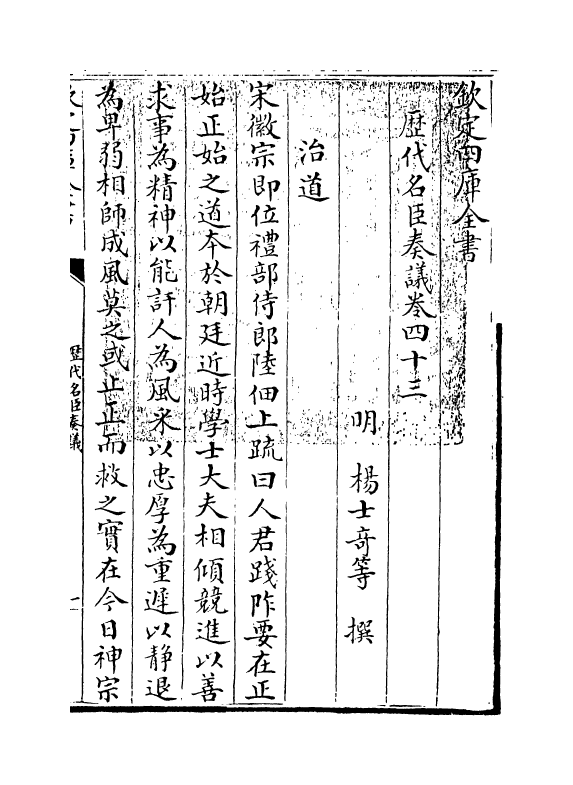 欽定四庫全書
歴代名臣奏議卷四十三
明 楊士奇等 撰
治道
宋徽宗即位禮部侍郎陸佃上疏曰人君踐阼要在正
始正始之道本於朝廷近時學士大夫相傾競進以善
求事為精神以能訐人為風采以忠厚為重遲以靜退
為卑弱相師成風莫之或止正而救之實在今日神宗
歴代名臣奏議
一